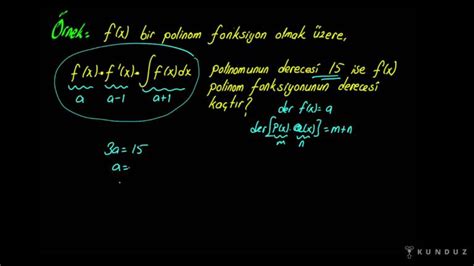 Örnek: f'(x) bir polinom fonksiyon olmak üzere,
f(x)·f'(x)·∫f(x)dx polinomunun derecesi 15 ise f'(x)
a a-1 a+1 polinom fonksiyonunun derecesi
kaçtır?
der f(x)=a
der[P(x)·Q(x)]=m+n
m n
3a=15
a=
KUNDUZ